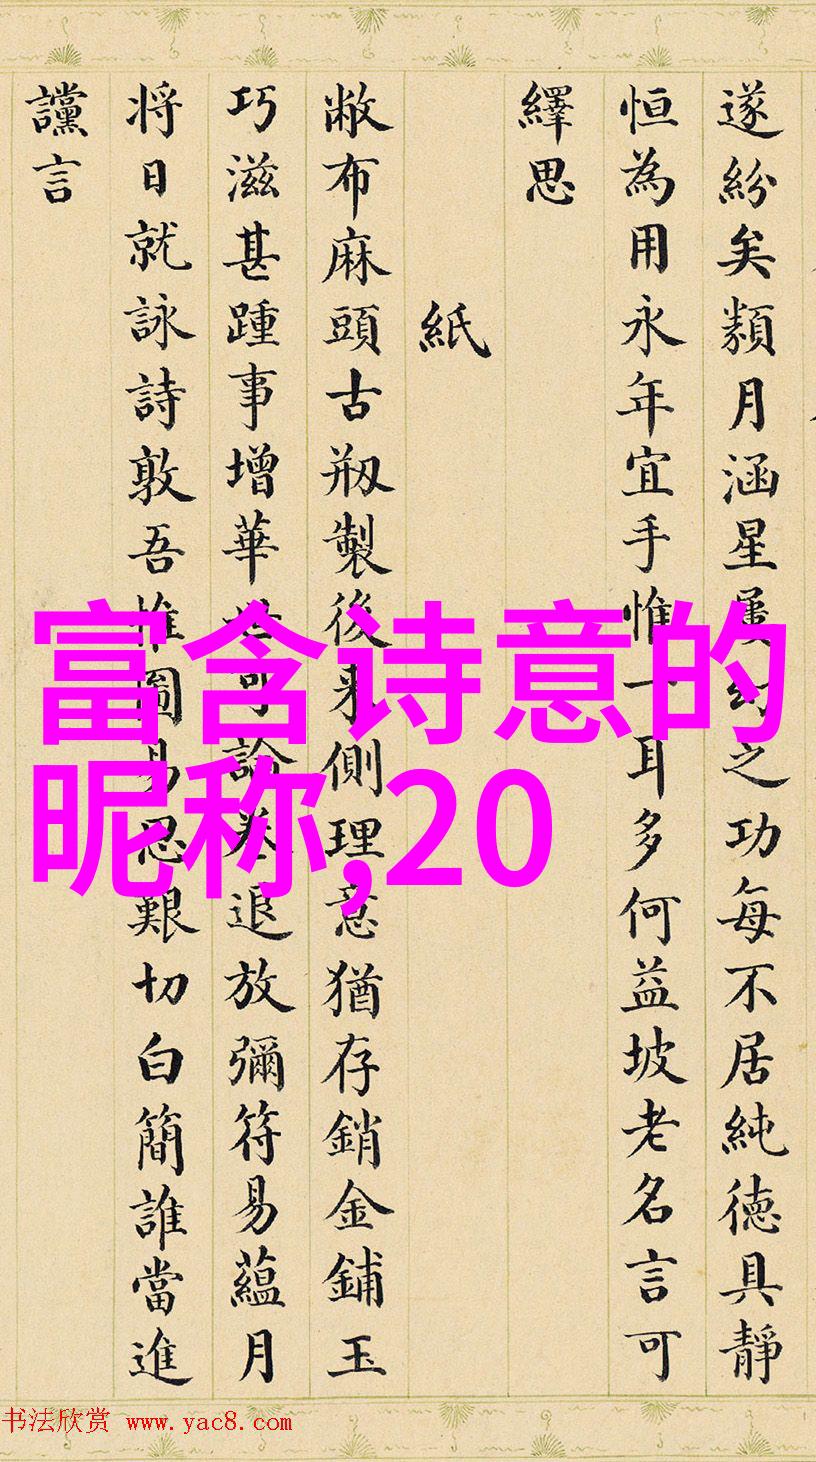 遂紛矣類月涵星之功每不居純德具靜
恒為用永年宜手惟一耳多何益坡老名言可
繹思
紙
敝布麻頭古剏製後来側理意猶存銷金鋪玉
巧滋甚踵事增華可論退放彌符易蘊月
将日就詠詩敦吾惟圖易思艱切白簡誰當進
讜言
富含诗意的
昵称,20
书法欣赏 www.yac8.com